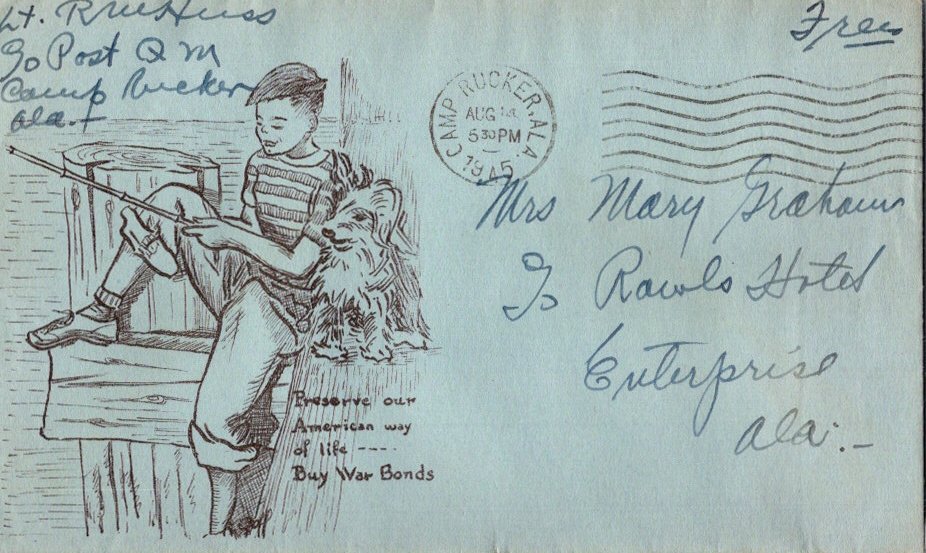 Lt. R McHuss
c/o Post Q M
Camp Rucker
Ala.
Free
CAMP RUCKER, ALA.
AUG
5 30 PM
1945
Mrs Mary Graham
c/o Rawls Hotel
Enterprise
Ala.
Preserve our
American way
of life ----
Buy War Bonds